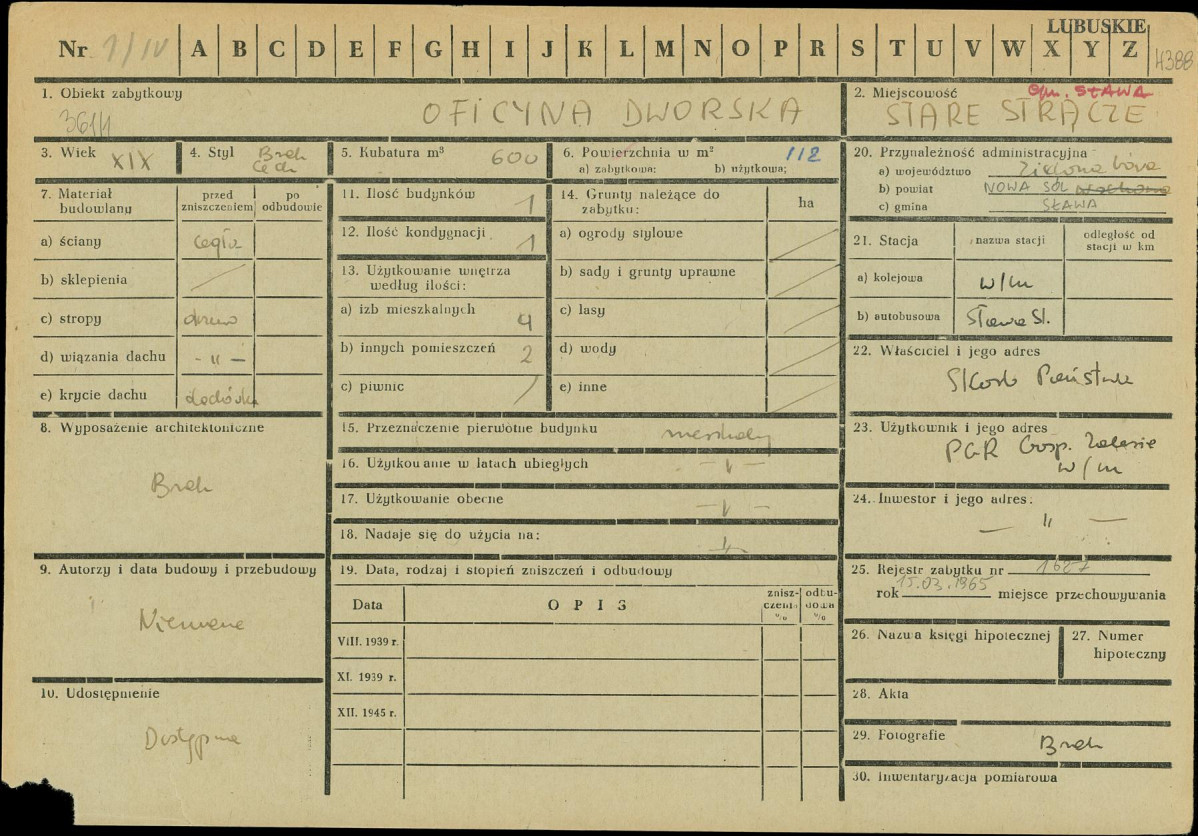 LUBUSKIE
Nr 1/IV A B C D E F G H I J K L M N O P R S T U V W X Y Z 4388
1. Obiekt zabytkowy
OFICYNA DWORSKA
2. Miejscowość gm. SŁAWA
STARE STRĄCZE
3. Wiek XIX
4. Styl Brak cech
5. Kubatura m³ 600
6. Powierzchnia w m² 112
a) zabytkowa: b) użytkowa;
20. Przynależność administracyjna
a) województwo Zielona Góra
b) powiat NOWA SÓL
c) gmina SŁAWA
7. Materiał budowlany
przed zniszczeniem
po odbudowie
a) ściany cegła
b) sklepienia /
c) stropy drewno
d) wiązania dachu - " -
e) krycie dachu dachówka
11. Ilość budynków 1
12. Ilość kondygnacji 1
13. Użytkowanie wnętrza
według ilości:
a) izb mieszkalnych 4
b) innych pomieszczeń 2
c) piwnic /
14. Grunty należące do
zabytku:
ha
a) ogrody stylowe
b) sady i grunty uprawne
c) lasy
d) wody
e) inne
21. Stacja
nazwa stacji
odległość od
stacji w km
a) kolejowa w/m
b) autobusowa Sława Śl.
22. Właściciel i jego adres
Skarb Państwa
8. Wyposażenie architektoniczne
Brak
15. Przeznaczenie pierwotne budynku mieszkalny
16. Użytkowanie w latach ubiegłych - " -
17. Użytkowanie obecne - " -
18. Nadaje się do użycia na: - " -
23. Użytkownik i jego adres
PGR Gosp. Zalesie
w/m
24. Inwestor i jego adres:
- " -
9. Autorzy i data budowy i przebudowy
Nieznane
10. Udostępnienie
Dostępne
19. Data, rodzaj i stopień zniszczeń i odbudowy
Data
OPIS
znisz-
czenia
%
odbu-
dowa
%
VIII. 1939 r.
XI. 1939 r.
XII. 1945 r.
25. Rejestr zabytku nr 1627
rok 15.03.1965 miejsce przechowywania
26. Nazwa księgi hipotecznej
27. Numer
hipoteczny
28. Akta
29. Fotografie
Brak
30. Inwentaryzacja pomiarowa